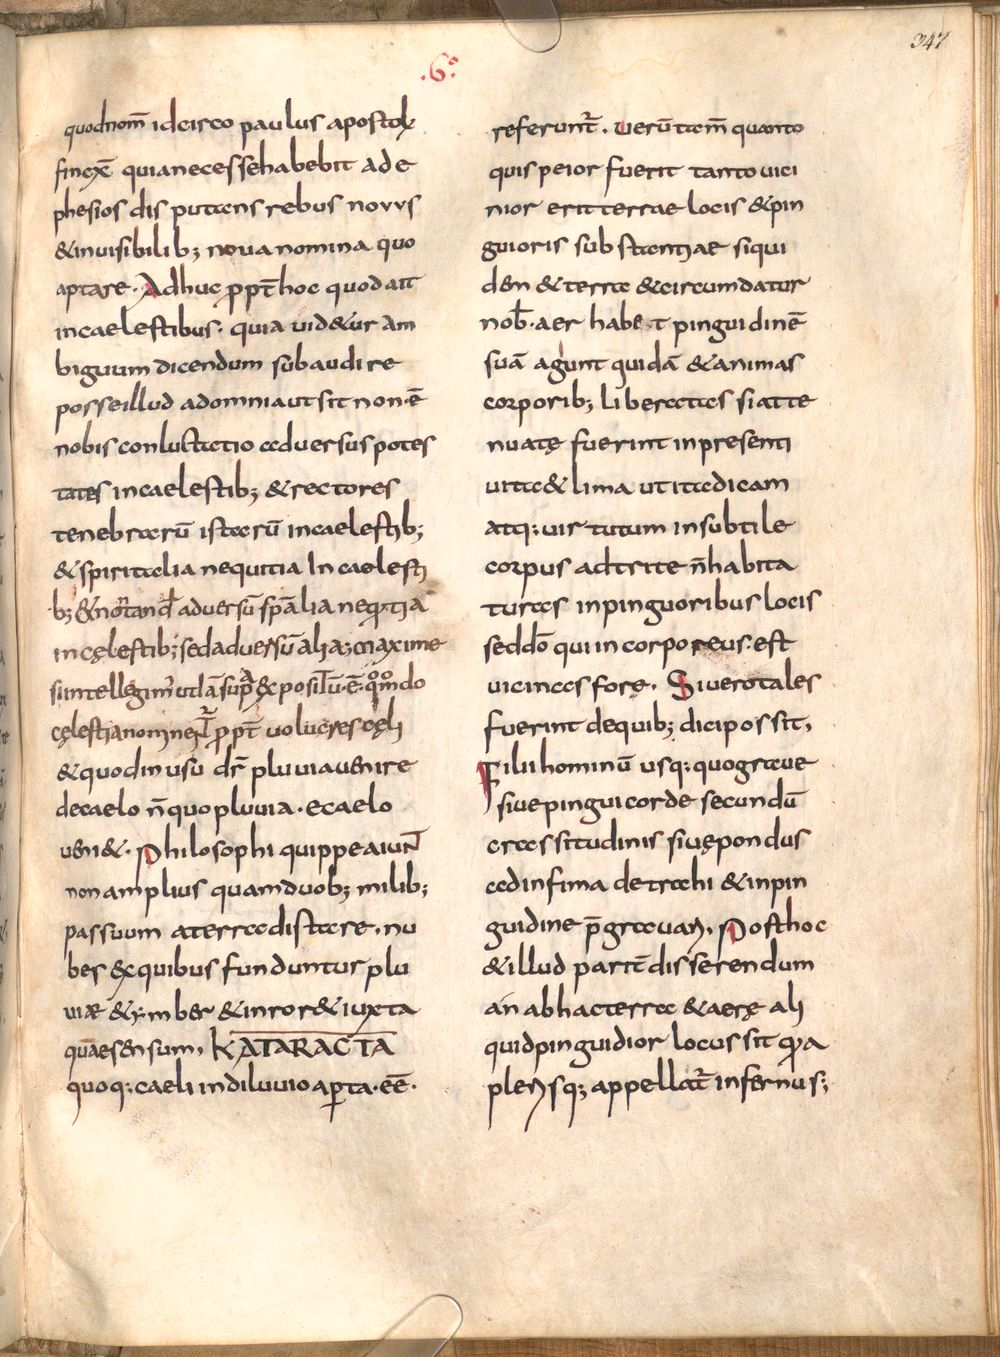 347
.6.a
quodnom̄ idcirco paulus apostol;
finẍ̄ quianecessehabebit ade
phesios disputans rebus novvs
&inuisibilib; noua nomina quo
aptare. Adhuc ꝓpt̄ hoc quod ait
incaelestibus. quia uid&ur am
biguum dicendum subaudire
posseillud adomniaut sit non ē
nobis conluctatio aduersus potes
tates incaelestib; & rectores
tenebrarū istarū incaelestib;
& spiritalia nequitia In caelesti
b; &n̄ tand̄ aduersū sp̄alia neq̄tia
incęlestib; sed aduersū alia; maxime
si intellegim̄ ut lā sup̄ expositū ē. qm̊do
cęlestia nominent̄ ꝓpt̄ uolucres cęli
& quod in usu dr̄ pluuia uenire
decaelo n̄ quo pluuia. ecaelo
ueni&. Philosophi quippe aiunt
non amplius quam duob; milib;
passuum a terra distare. nu
bes ex quibus funduntur plu
uiæ & ymber & inror& iuxta
quāe sensum, KATARACTA
quoq; caeli in diluuio aꝑta. eē.
referunt̄. uerūtam̄ quanto
quis peior fuerit tanto uici
nior erit terrae locis & pin
guioris substantiae siqui
dem & terra & circumdatur
nob̄. aer habe t pinguidinē
suā agunt quidā & animas
corporib; liberatas si atte
nuatę fuerint in presenti
uita & lima ut ita dicam
atq; uirtutum in subtile
corpus adtrite n̄ habita
turas in pinguoribus locis
sed dō qui incorporeus. est
uicinas forę. Si uero tales
fuerint de quib; dici possit,
Filii hominū usq; quo graue
siue pingui corde secundū
crassitudinis siuę pondus
ad infima detrachi & inpin
guidine p̄grauari, Post hoc
& illud part̄ disserendum
an ab hac terra & aerę ali
quid pinguidior locus sit ꝗa
plerisq; appellat̄ infernus;